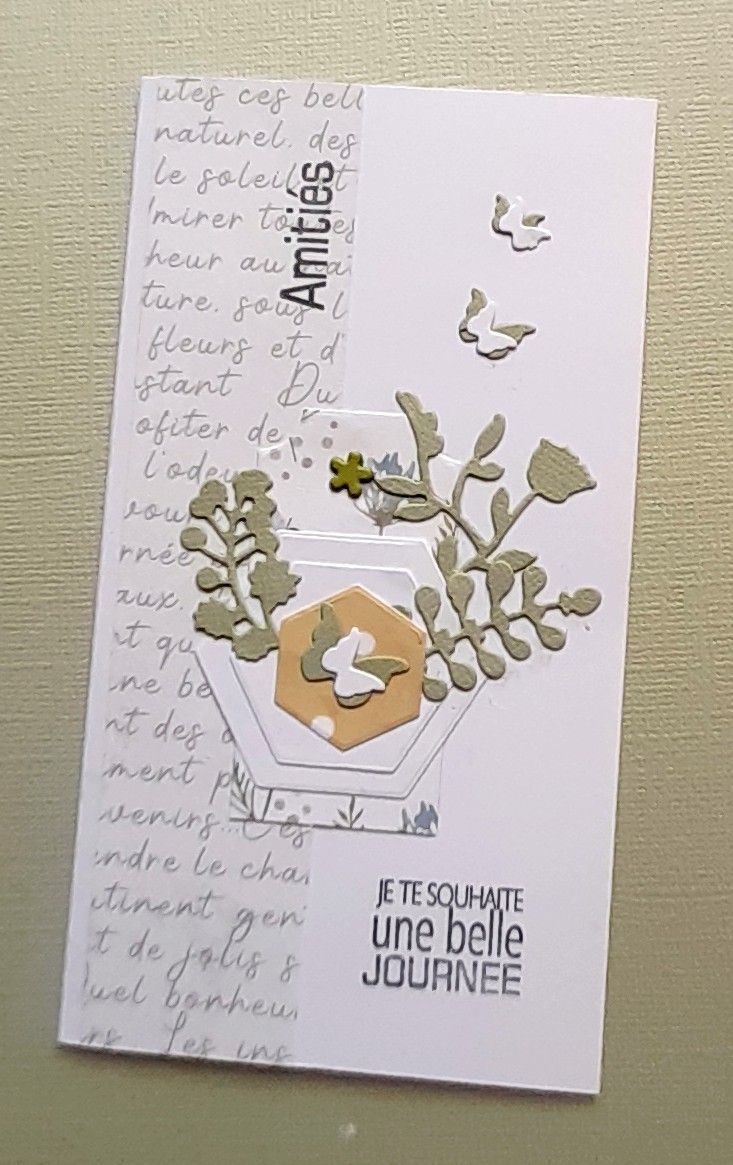 utes ces bell
naturel. des
le soleil et
mirer toutes
heur au
ture. sous l
fleurs et d'
stant Du
ofiter de
l'odeu
rnée
aux.
nt qu
ne be
nt des
ment p
venirs... Les
ndre le cha
tinent gen
t de jolis s
uel bonheu
rs Les ins
Amitiés
JE TE SOUHAITE
une belle
JOURNEE